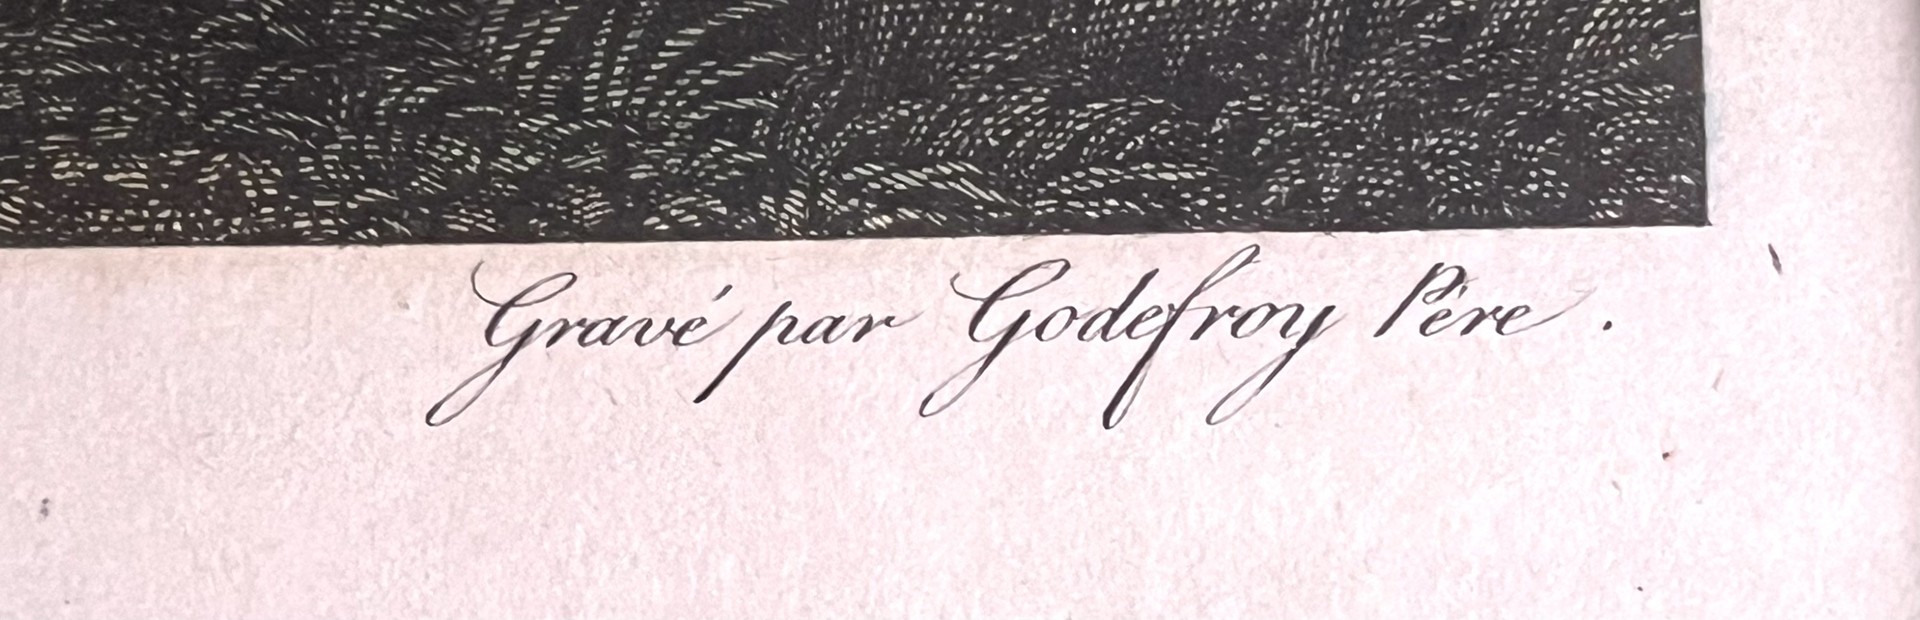 Gravé par Godefroy Père .